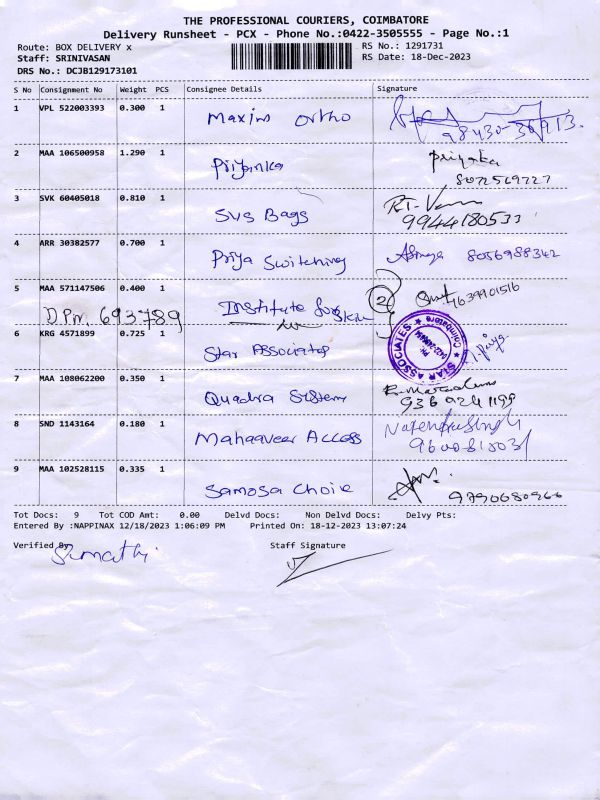 THE PROFESSIONAL COURIERS, COIMBATORE
Delivery Runsheet - PCX - Phone No.:0422-3505555 - Page No.:1
Route: BOX DELIVERY x
RS No.: 1291731
Staff: SRINIVASAN
RS Date: 18-Dec-2023
DRS No.: DCJB129173101
S No Consignment No Weight PCS Consignee Details Signature
1 VPL 522003393 0.300 1 Maxim Ortho
2 MAA 106500958 1.290 1 Priyanka Priyanka
8072569727
3 SVK 60405018 0.810 1 SVS Bags
9944180533
4 ARR 30382577 0.700 1 Priya Switching 8056988342
5 MAA 571147506 0.400 1 Institute for Skin 2
D.Pm. 693789
6 KRG 4571899 0.725 1 Star Associates
STAR ASSOCIATES Coimbatore
7 MAA 108062200 0.350 1 Quadra System
8 SND 1143164 0.180 1 Mahaaveer Access
9 MAA 102528115 0.335 1 Samosa Choice 9790680966
Tot Docs: 9 Tot COD Amt: 0.00 Delvd Docs: Non Delvd Docs: Delvy Pts:
Entered By :NAPPINAX 12/18/2023 1:06:09 PM Printed On: 18-12-2023 13:07:24
Verified By
Staff Signature